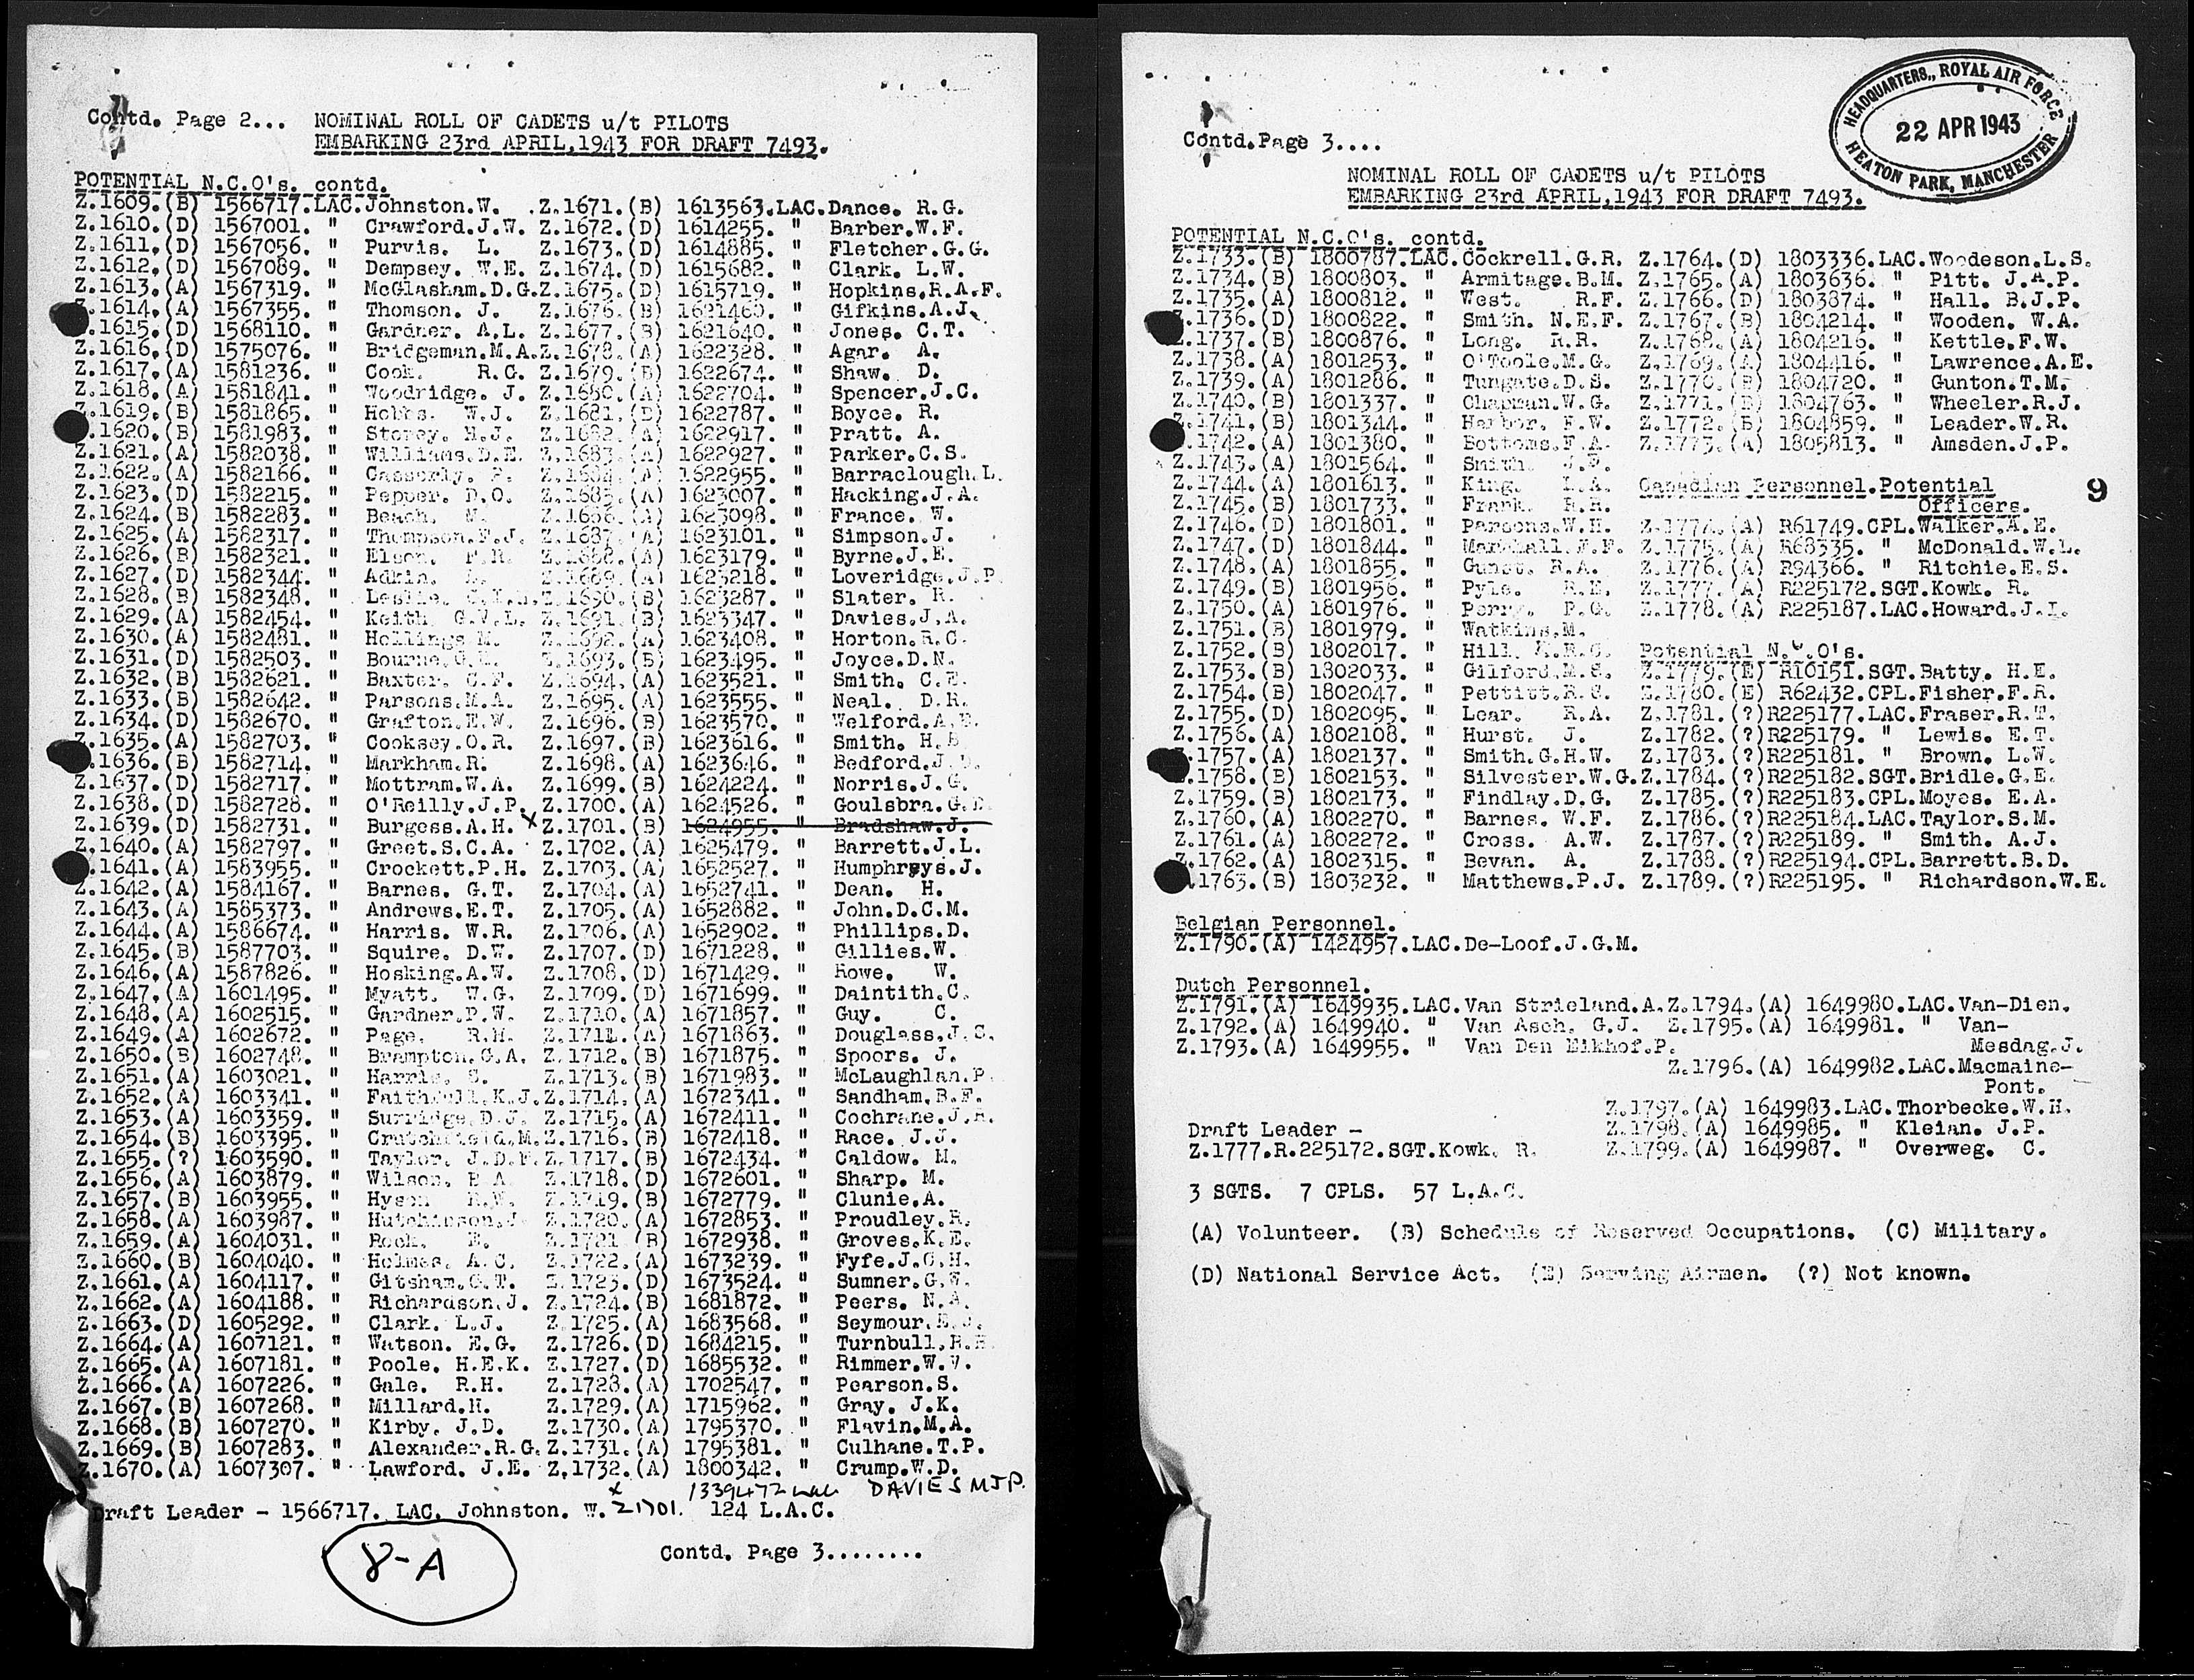 Contd. Page 2... NOMINAL ROLL OF CADETS u/t PILOTS
EMBARKING 23rd APRIL,1943 FOR DRAFT 7493.
POTENTIAL N.C.O's. contd.
Z.1609.(B) 1566717.LAC.Johnston.W. .Z.1671.(B) 1613563.LAC.Dance. R.G.
Z.1610.(D) 1567001. " Crawford.J.W. Z.1672.(D) 1614255. " Barber.W.F.
Z.1611.(D) 1567056. " Purvis. L. Z.1673.(D) 1614885. " Fletcher.G.G.
Z.1612.(D) 1567089. " Dempsey. W.E. Z.1674.(D) 1615682. " Clark. L.W.
Z.1613.(A) 1567319. " McGlasham.D.G.Z.1675.(D) 1615719. " Hopkins.R.A.F.
.1614.(A) 1567355. " Thomson. J. Z.1676.(B) 1621460. " Gifkins.A.J.
.1615.(D) 1568110. " Gardner. A.L. Z.1677.(B) 1621640. " Jones. C.T.
Z.1616.(D) 1575076. " Bridgeman.M.A.Z.1678.(A) 1622328. " Agar. A.
Z.1617.(A) 1581236. " Cook. R.G. Z.1679.(B) 1622674. " Shaw. D.
Z.1618.(A) 1581841. " Woodridge. J. Z.1680.(A) 1622704. " Spencer.J.C.
Z.1619.(B) 1581865. " Hobbs. W.J. Z.1681.(D) 1622787. " Boyce. R.
.1620.(B) 1581983. " Storey. H.J. Z.1682.(A) 1622917. " Pratt. A.
Z.1621.(A) 1582038. " Williams.D.E. Z.1683.(A) 1622927. " Parker.C.S.
Z.1622.(A) 1582166. " Casserly. P. Z.1684.(A) 1622955. " Barraclough.L.
Z.1623.(D) 1582215. " Pepper. D.O. Z.1685.(A) 1623007. " Hacking.J.A.
Z.1624.(B) 1582283. " Beach. Z.1686.(A) 1623098. " France. W.
Z.1625.(A) 1582317. " Thompson.F.J. Z.1687.(A) 1623101. " Simpson.J.
Z.1626.(B) 1582321. " Elson. F.R. Z.1688.(A) 1623179. " Byrne.J.E.
Z.1627.(D) 1582344. " Adkin. Z.1689.(A) 1623218. " Loveridge.J.P.
Z.1628.(B) 1582348. " Leslie. Z.1690.(B) 1623287. " Slater. R.
Z.1629.(A) 1582454. " Keith. G.V.L. Z.1691.(B) 1623347. " Davies.J.A.
Z.1630.(A) 1582481. " Hollings M. Z.1692.(A) 1623408. " Horton.R.C.
Z.1631.(D) 1582503. " Bourne. Z.1693.(B) 1623495. " Joyce.D.N.
Z.1632.(B) 1582621. " Baxter. C.F. Z.1694.(A) 1623521. " Smith. C.E.
Z.1633.(B) 1582642. " Parsons.M.A. Z.1695.(A) 1623555. " Neal. D.R.
Z.1634.(D) 1582670. " Grafton.E.W. Z.1696.(B) 1623570. " Welford.A.E.
Z.1635.(A) 1582703. " Cooksey.O.R. Z.1697.(B) 1623616. " Smith. H.B.
.1636.(B) 1582714. " Markham.R. Z.1698.(A) 1623646. " Bedford.J.
Z.1637.(D) 1582717. " Mottram.W.A. Z.1699.(B) 1624224. " Norris.J.G.
Z.1638.(D) 1582728. " O'Reilly.J.P. Z.1700.(A) 1624526. " Goulsbra.G.E.
Z.1639.(D) 1582731. " Burgess.A.H. x Z.1701.(B) 1624955. " Bradshaw.J.
Z.1640.(A) 1582797. " Greet.S.C.A. Z.1702.(A) 1625479. " Barrett.J.L.
.1641.(A) 1583955. " Crockett.P.H. Z.1703.(A) 1652527. " Humphreys.J.
Z.1642.(A) 1584167. " Barnes. G.T. Z.1704.(A) 1652741. " Dean. H.
Z.1643.(A) 1585373. " Andrews.E.T. Z.1705.(A) 1652882. " John.D.C.M.
Z.1644.(A) 1586674. " Harris. W.R. Z.1706.(A) 1652902. " Phillips.D.
Z.1645.(B) 1587703. " Squire. D.W. Z.1707.(D) 1671228. " Gillies.W.
Z.1646.(A) 1587826. " Hosking.A.W. Z.1708.(D) 1671429. " Rowe. W.
Z.1647.(A) 1601495. " Myatt. W.G. Z.1709.(D) 1671699. " Daintith.C.
Z.1648.(A) 1602515. " Gardner.P.W. Z.1710.(A) 1671857. " Guy. C.
Z.1649.(A) 1602672. " Page. R.H. Z.1711.(A) 1671863. " Douglass.J.C.
Z.1650.(B) 1602748. " Brampton.G.A. Z.1712.(B) 1671875. " Spoors. J.
Z.1651.(A) 1603021. " Harris. S. Z.1713.(B) 1671983. " McLaughlan.P.
Z.1652.(A) 1603341. " Faithfull.K.J.Z.1714.(A) 1672341. " Sandham.B.F.
Z.1653.(A) 1603359. " Surridge.D.J. Z.1715.(A) 1672411. " Cochrane.J.R.
Z.1654.(B) 1603395. " Crutchfield.M.Z.1716.(B) 1672418. " Race. J.J.
Z.1655.(?) 1603590. " Taylor. J.D.F.Z.1717.(B) 1672434. " Caldow. M.
Z.1656.(A) 1603879. " Wilson. Z.1718.(D) 1672601. " Sharp. M.
Z.1657.(B) 1603955. " Hyson R.W. Z.1719.(B) 1672779. " Clunie.A.
Z.1658.(A) 1603987. " Hutchinson.J. Z.1720.(A) 1672853. " Proudley.R.
Z.1659.(A) 1604031. " Rook. E. Z.1721.(B) 1672938. " Groves.K.E.
Z.1660.(B) 1604040. " Holmes. A.C. Z.1722.(A) 1673239. " Fyfe.J.G.H.
Z.1661.(A) 1604117. " Gitsham.G.T. Z.1723.(D) 1673524. " Sumner.G.W.
Z.1662.(A) 1604188. " Richardson.J. Z.1724.(B) 1681872. " Peers. N.A.
Z.1663.(D) 1605292. " Clark. L.J. Z.1725.(A) 1683568. " Seymour.
Z.1664.(A) 1607121. " Watson. E.G. Z.1726.(D) 1684215. " Turnbull.R.
Z.1665.(A) 1607181. " Poole. H.E.K. Z.1727.(D) 1685532. " Rimmer.W.W.
Z.1666.(A) 1607226. " Gale. R.H. Z.1728.(A) 1702547. " Pearson.S.
Z.1667.(B) 1607268. " Millard.H. Z.1729.(A) 1715962. " Gray. J.K.
Z.1668.(B) 1607270. " Kirby. J.D. Z.1730.(A) 1795370. " Flavin.M.A.
Z.1669.(B) 1607283. " Alexander.R.G. Z.1731.(A) 1795381. " Culhane.T.P.
Z.1670.(A) 1607307. " Lawford. J.E. Z.1732.(A) 1800342. " Crump.W.D.
x 1339472 LAC DAVIES MJP.
Draft Leader - 1566717. LAC. Johnston. W. Z1701. 124 L.A.C.
Contd. Page 3........
8-A
HEADQUARTERS., ROYAL AIR FORCE
22 APR 1943
HEATON PARK, MANCHESTER
Contd.Page 3....
NOMINAL ROLL OF CADETS u/t PILOTS
EMBARKING 23rd APRIL,1943 FOR DRAFT 7493.
POTENTIAL N.C.O's. contd.
Z.1733.(B) 1800787.LAC.Cockrell.G.R. Z.1764.(D) 1803336.LAC.Woodeson.L.S.
Z.1734.(B) 1800803. " Armitage.B.M. Z.1765.(A) 1803636. " Pitt. J.A.P.
Z.1735.(A) 1800812. " West. R.F. Z.1766.(D) 1803874. " Hall. B.J.P.
.1736.(D) 1800822. " Smith. N.E.F. Z.1767.(B) 1804214. " Wooden. W.A.
.1737.(B) 1800876. " Long. R.R. Z.1768.(A) 1804216. " Kettle.F.W.
Z.1738.(A) 1801253. " O'Toole.M.G. Z.1769.(A) 1804416. " Lawrence.A.E.
Z.1739.(A) 1801286. " Tungate.D.S. Z.1770.(B) 1804720. " Gunton.T.M.
Z.1740.(B) 1801337. " Chapman.W.G. Z.1771.(B) 1804763. " Wheeler.R.J.
Z.1741.(B) 1801344. " Harbor. F.W. Z.1772.(B) 1804859. " Leader.W.R.
.1742.(A) 1801380. " Bottoms.F.A. Z.1773.(A) 1805813. " Amsden.J.P.
Z.1743.(A) 1801564. " Smith. J.F.
Z.1744.(A) 1801613. " King. Canadian Personnel.Potential 9
Z.1745.(B) 1801733. " Frank. R.R. Officers.
Z.1746.(D) 1801801. " Parsons.W.H. Z.1774.(A) R61749.CPL.Walker.A.E.
Z.1747.(D) 1801844. " Marshall. Z.1775.(A) R68335. " McDonald.W.L.
Z.1748.(A) 1801855. " Gunst. R.A. Z.1776.(A) R94366. " Ritchie.E.S.
Z.1749.(B) 1801956. " Pyle. R.E. Z.1777.(A) R225172.SGT.Kowk. R.
Z.1750.(A) 1801976. " Perry. P.G. Z.1778.(A) R225187.LAC.Howard.J.I.
Z.1751.(B) 1801979. " Watkins.M.
Z.1752.(B) 1802017. " Hill. Potential N.C.O's.
Z.1753.(B) 1802033. " Gilford.M.S. Z.1779.(E) R10151.SGT.Batty. H.E.
Z.1754.(B) 1802047. " Pettitt.R.G. Z.1780.(E) R62432.CPL.Fisher.F.R.
Z.1755.(D) 1802095. " Lear. R.A. Z.1781.(?)R225177.LAC.Fraser.R.T.
Z.1756.(A) 1802108. " Hurst. J. Z.1782.(?)R225179. " Lewis. E.T.
.1757.(A) 1802137. " Smith.G.H.W. Z.1783.(?)R225181. " Brown. L.W.
.1758.(B) 1802153. " Silvester.W.G.Z.1784.(?)R225182.SGT.Bridle.G.E.
Z.1759.(B) 1802173. " Findlay.D.G. Z.1785.(?)R225183.CPL.Moyes. E.A.
Z.1760.(A) 1802270. " Barnes. W.F. Z.1786.(?)R225184.LAC.Taylor.S.M.
Z.1761.(A) 1802272. " Cross. A.W. Z.1787.(?)R225189. " Smith. A.J.
Z.1762.(A) 1802315. " Bevan. A. Z.1788.(?)R225194.CPL.Barrett.B.D.
.1763.(B) 1803232. " Matthews.P.J. Z.1789.(?)R225195. " Richardson.W.E.
Belgian Personnel.
Z.1790.(A) 1424957.LAC.De-Loof.J.G.M.
Dutch Personnel.
Z.1791.(A) 1649935.LAC.Van Strieland.A.Z.1794.(A) 1649980.LAC.Van-Dien.
Z.1792.(A) 1649940. " Van Asch. G.J. Z.1795.(A) 1649981. " Van-
Z.1793.(A) 1649955. " Van Den Eikhof.P. Mesdag.J.
Z.1796.(A) 1649982.LAC.Macmaine-
Pont.
Z.1797.(A) 1649983.LAC.Thorbecke.W.H.
Draft Leader - Z.1798.(A) 1649985. " Kleian. J.P.
Z.1777.R.225172.SGT.Kowk. R. Z.1799.(A) 1649987. " Overweg. C.
3 SGTS. 7 CPLS. 57 L.A.C.
(A) Volunteer. (B) Schedule of Reserved Occupations. (C) Military.
(D) National Service Act. (E) Serving Airmen. (?) Not known.